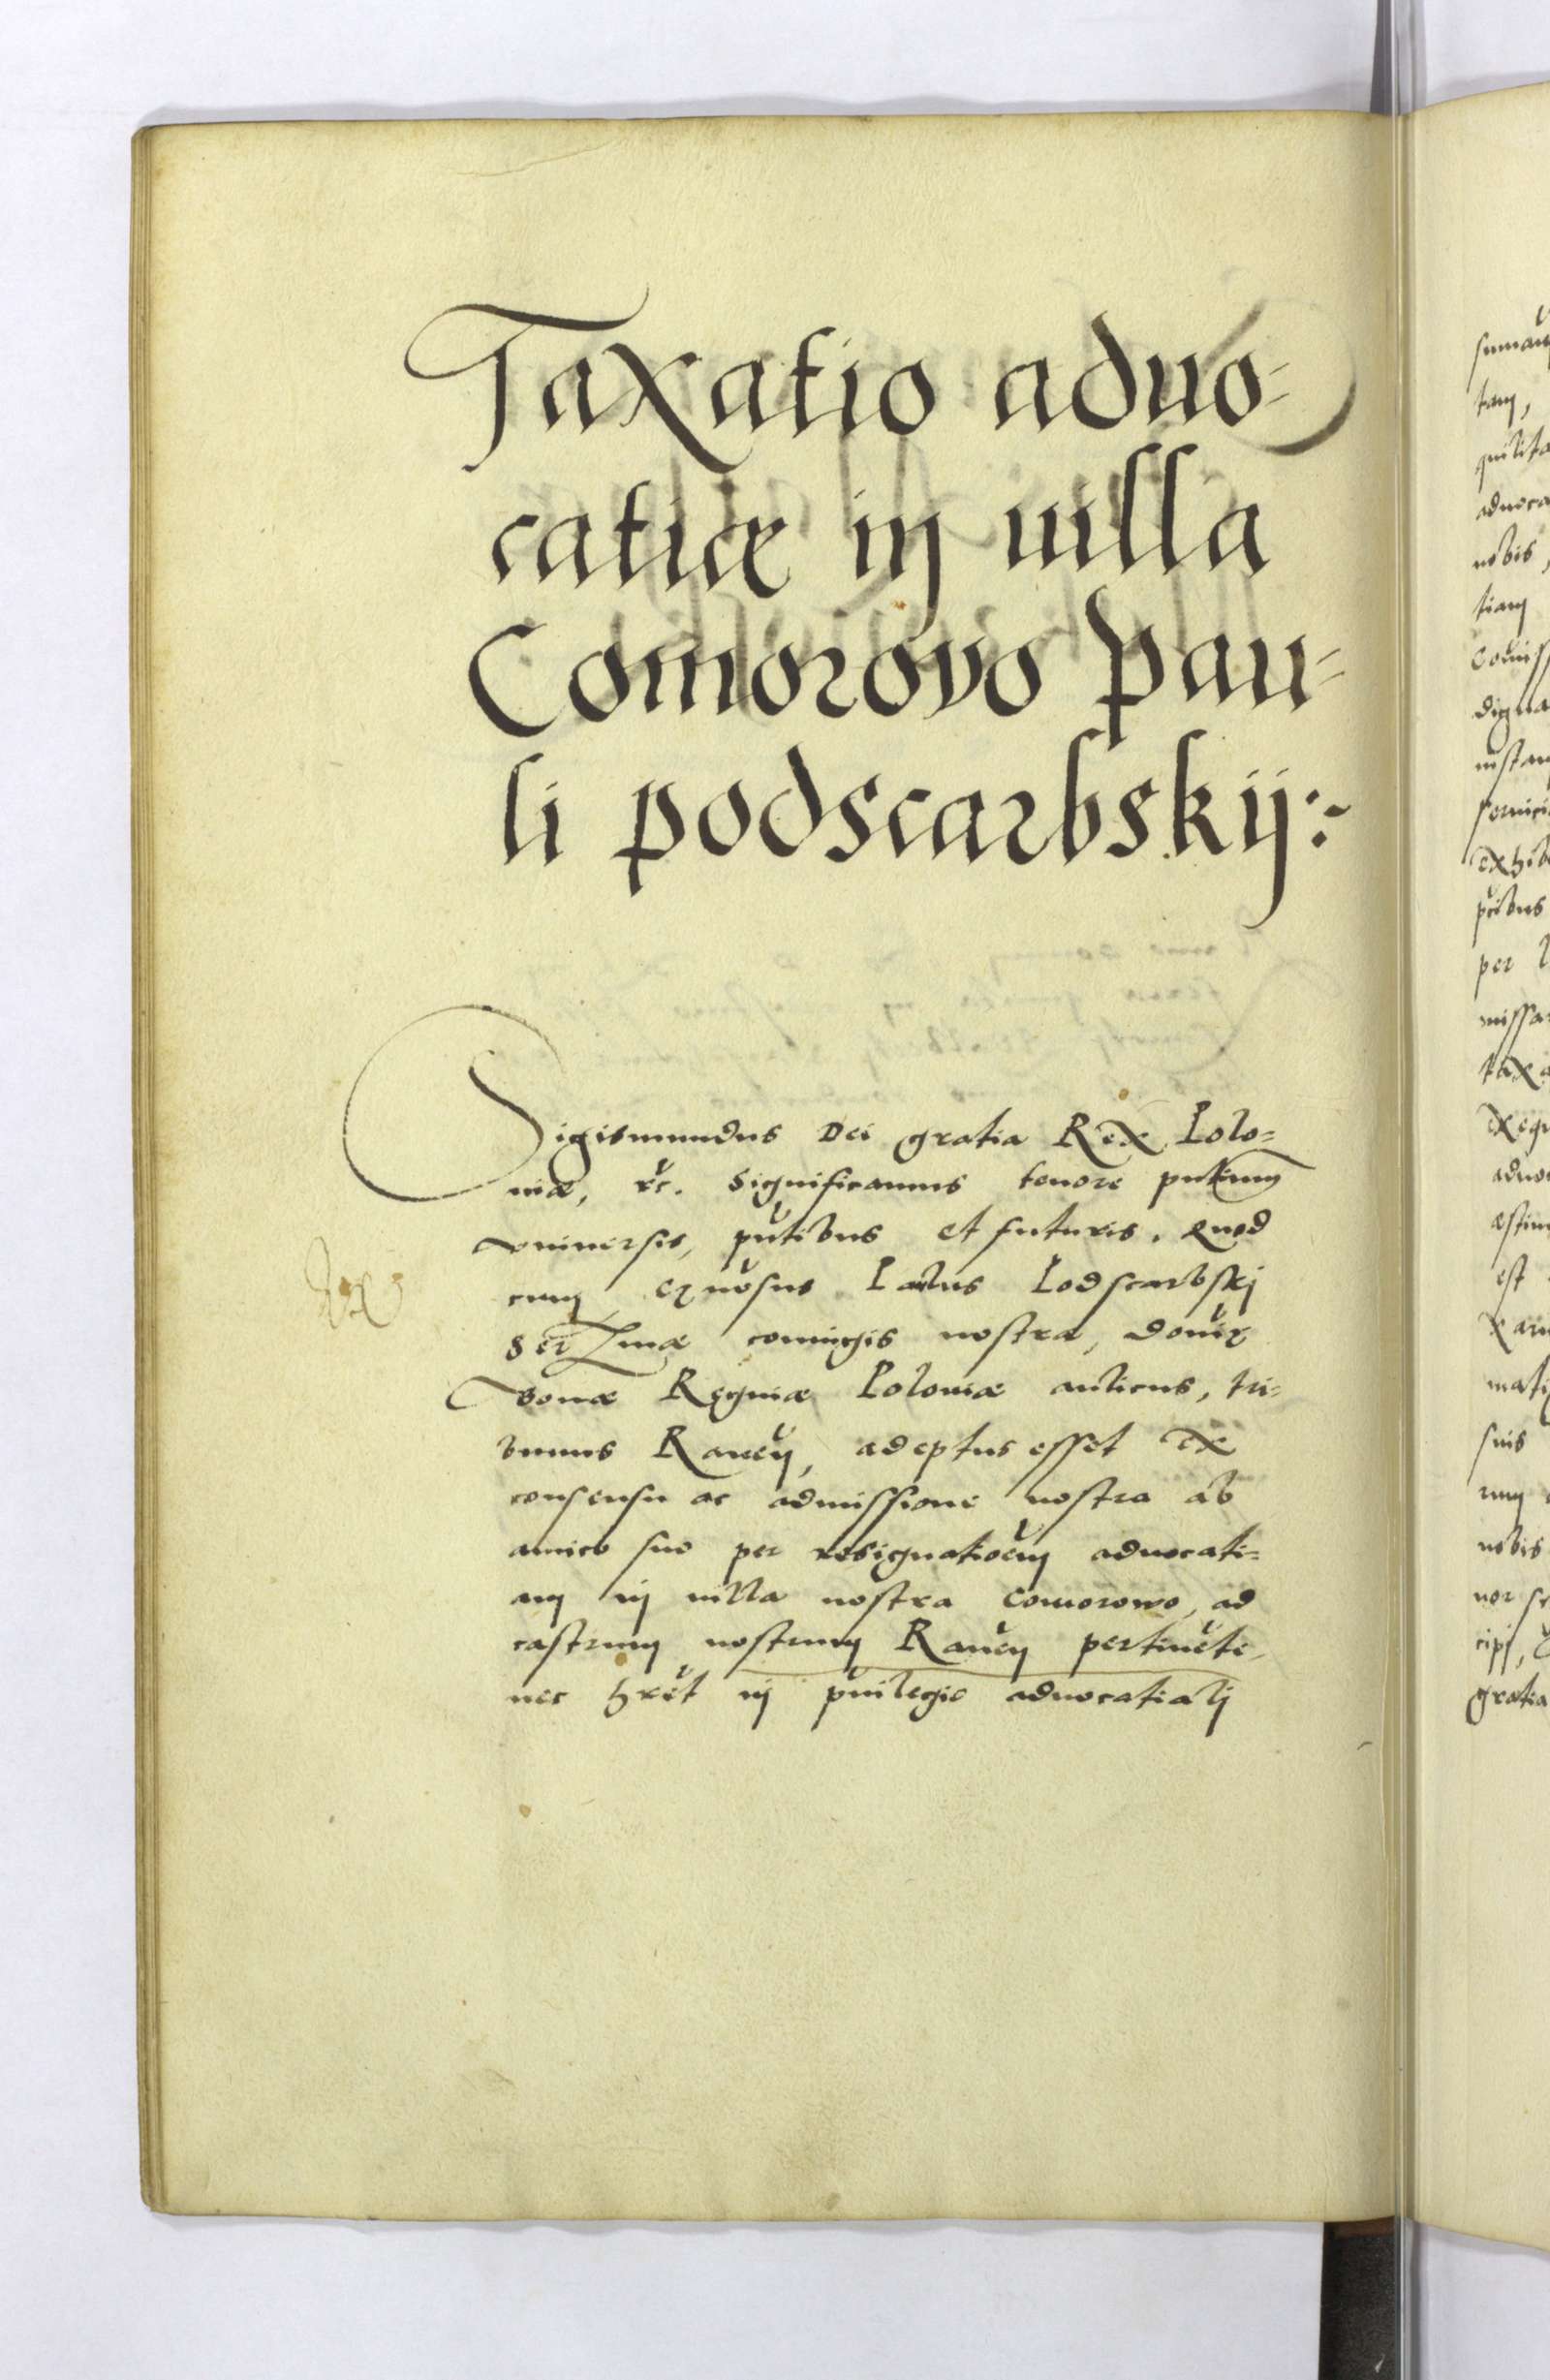 Taxatio aduo-
catiæ in uilla
Comorovo Pau-
li podscarbskij:~
Sigismundus Dei gratia Rex Polo=
niæ, etc. Significamus tenore pntium
vniuersis, pūtibus et futuris. Quod
cum gñosus Paulus Podscarbskj
Serzmæ coniugis nostræ, domīæ
Bonæ Reginæ Poloniæ aulicus, tri=
bunus Raveñ, adeptus esset ex
consensu ac admissione nostra ab
amico suo per resignatioēm aduocati=
am in uilla nostra Comorowo, ad
castrum nostrum Raveñ pertinēte,
nec hrēt in pūilegio aduocatialj
sumaū
tam,
aduoca
nobis,
tiam
Comiss
digna
instan
exhib
pētibus
per
missa
taxa
exequ
aduo
æstim
est
mati
suis
rum
nobis
nor se
cipj,
gratia